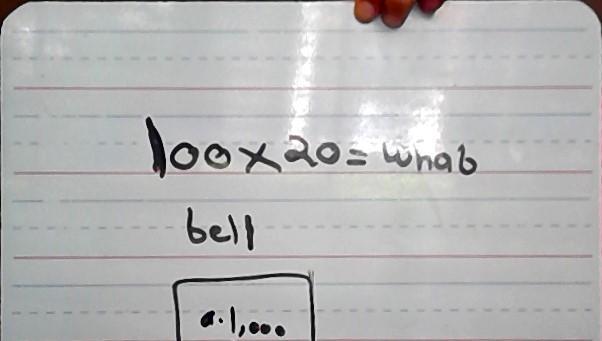 100×20=whab
bell
a.1,000